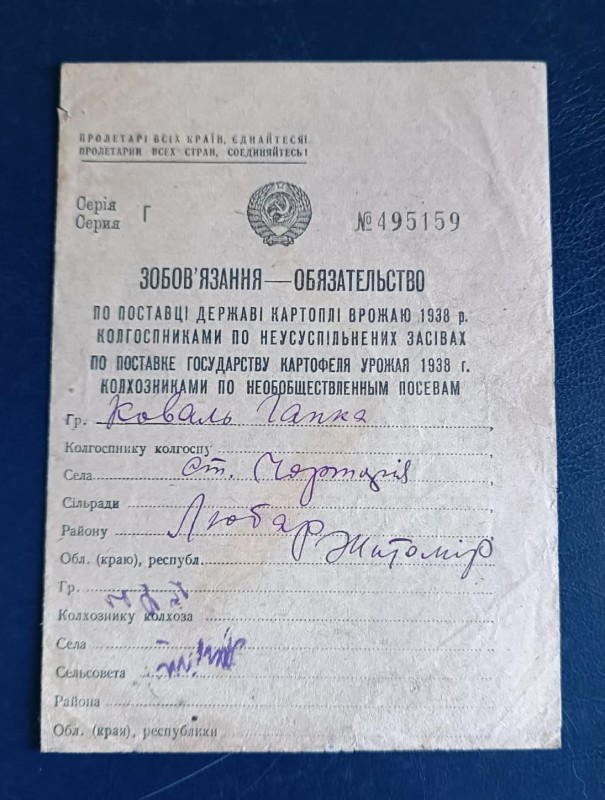 ПРОЛЕТАРІ ВСІХ КРАЇН, ЄДНАЙТЕСЯ!
ПРОЛЕТАРИИ ВСЕХ СТРАН, СОЕДИНЯЙТЕСЬ!
Серія
Серия Г
№ 495159
ЗОБОВ'ЯЗАННЯ—ОБЯЗАТЕЛЬСТВО
ПО ПОСТАВЦІ ДЕРЖАВІ КАРТОПЛІ ВРОЖАЮ 1938 р.
КОЛГОСПНИКАМИ ПО НЕУСУСПІЛЬНЕНИХ ЗАСІВАХ
ПО ПОСТАВКЕ ГОСУДАРСТВУ КАРТОФЕЛЯ УРОЖАЯ 1938 г.
КОЛХОЗНИКАМИ ПО НЕОБОБЩЕСТВЛЕННЫМ ПОСЕВАМ
Гр. Коваль Гапка
Колгоспнику колгоспу
Села ст. Чорторія
Сільради
Району Любар
Обл. (краю), республ. Житомір
Гр.
Колхознику колхоза
Села
Сельсовета
Района
Обл. (края), республики